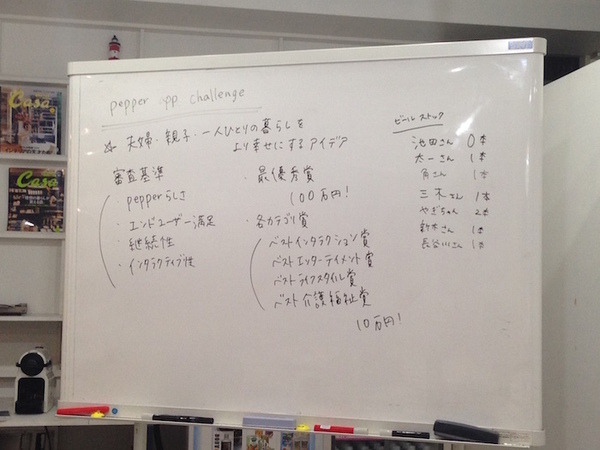 pepper app challenge
夫婦・親子・一人ひとりの暮らしを
より幸せにするアイデア
審査基準
・pepperらしさ
・エンドユーザー満足
・継続性
・インタラクティブ性
・最優秀賞
100万円!
・各カテゴリ賞
・ベストインタラクション賞
・ベストエンターテイメント賞
・ベストライフスタイル賞
・ベスト介護福祉賞
10万円!
ビールストック
池田さん 0本
太一さん 1本
角さん 1本
三木さん 1本
やぎちゃん 2本
新木さん 1本
長谷川さん 1本
Casa
Casa